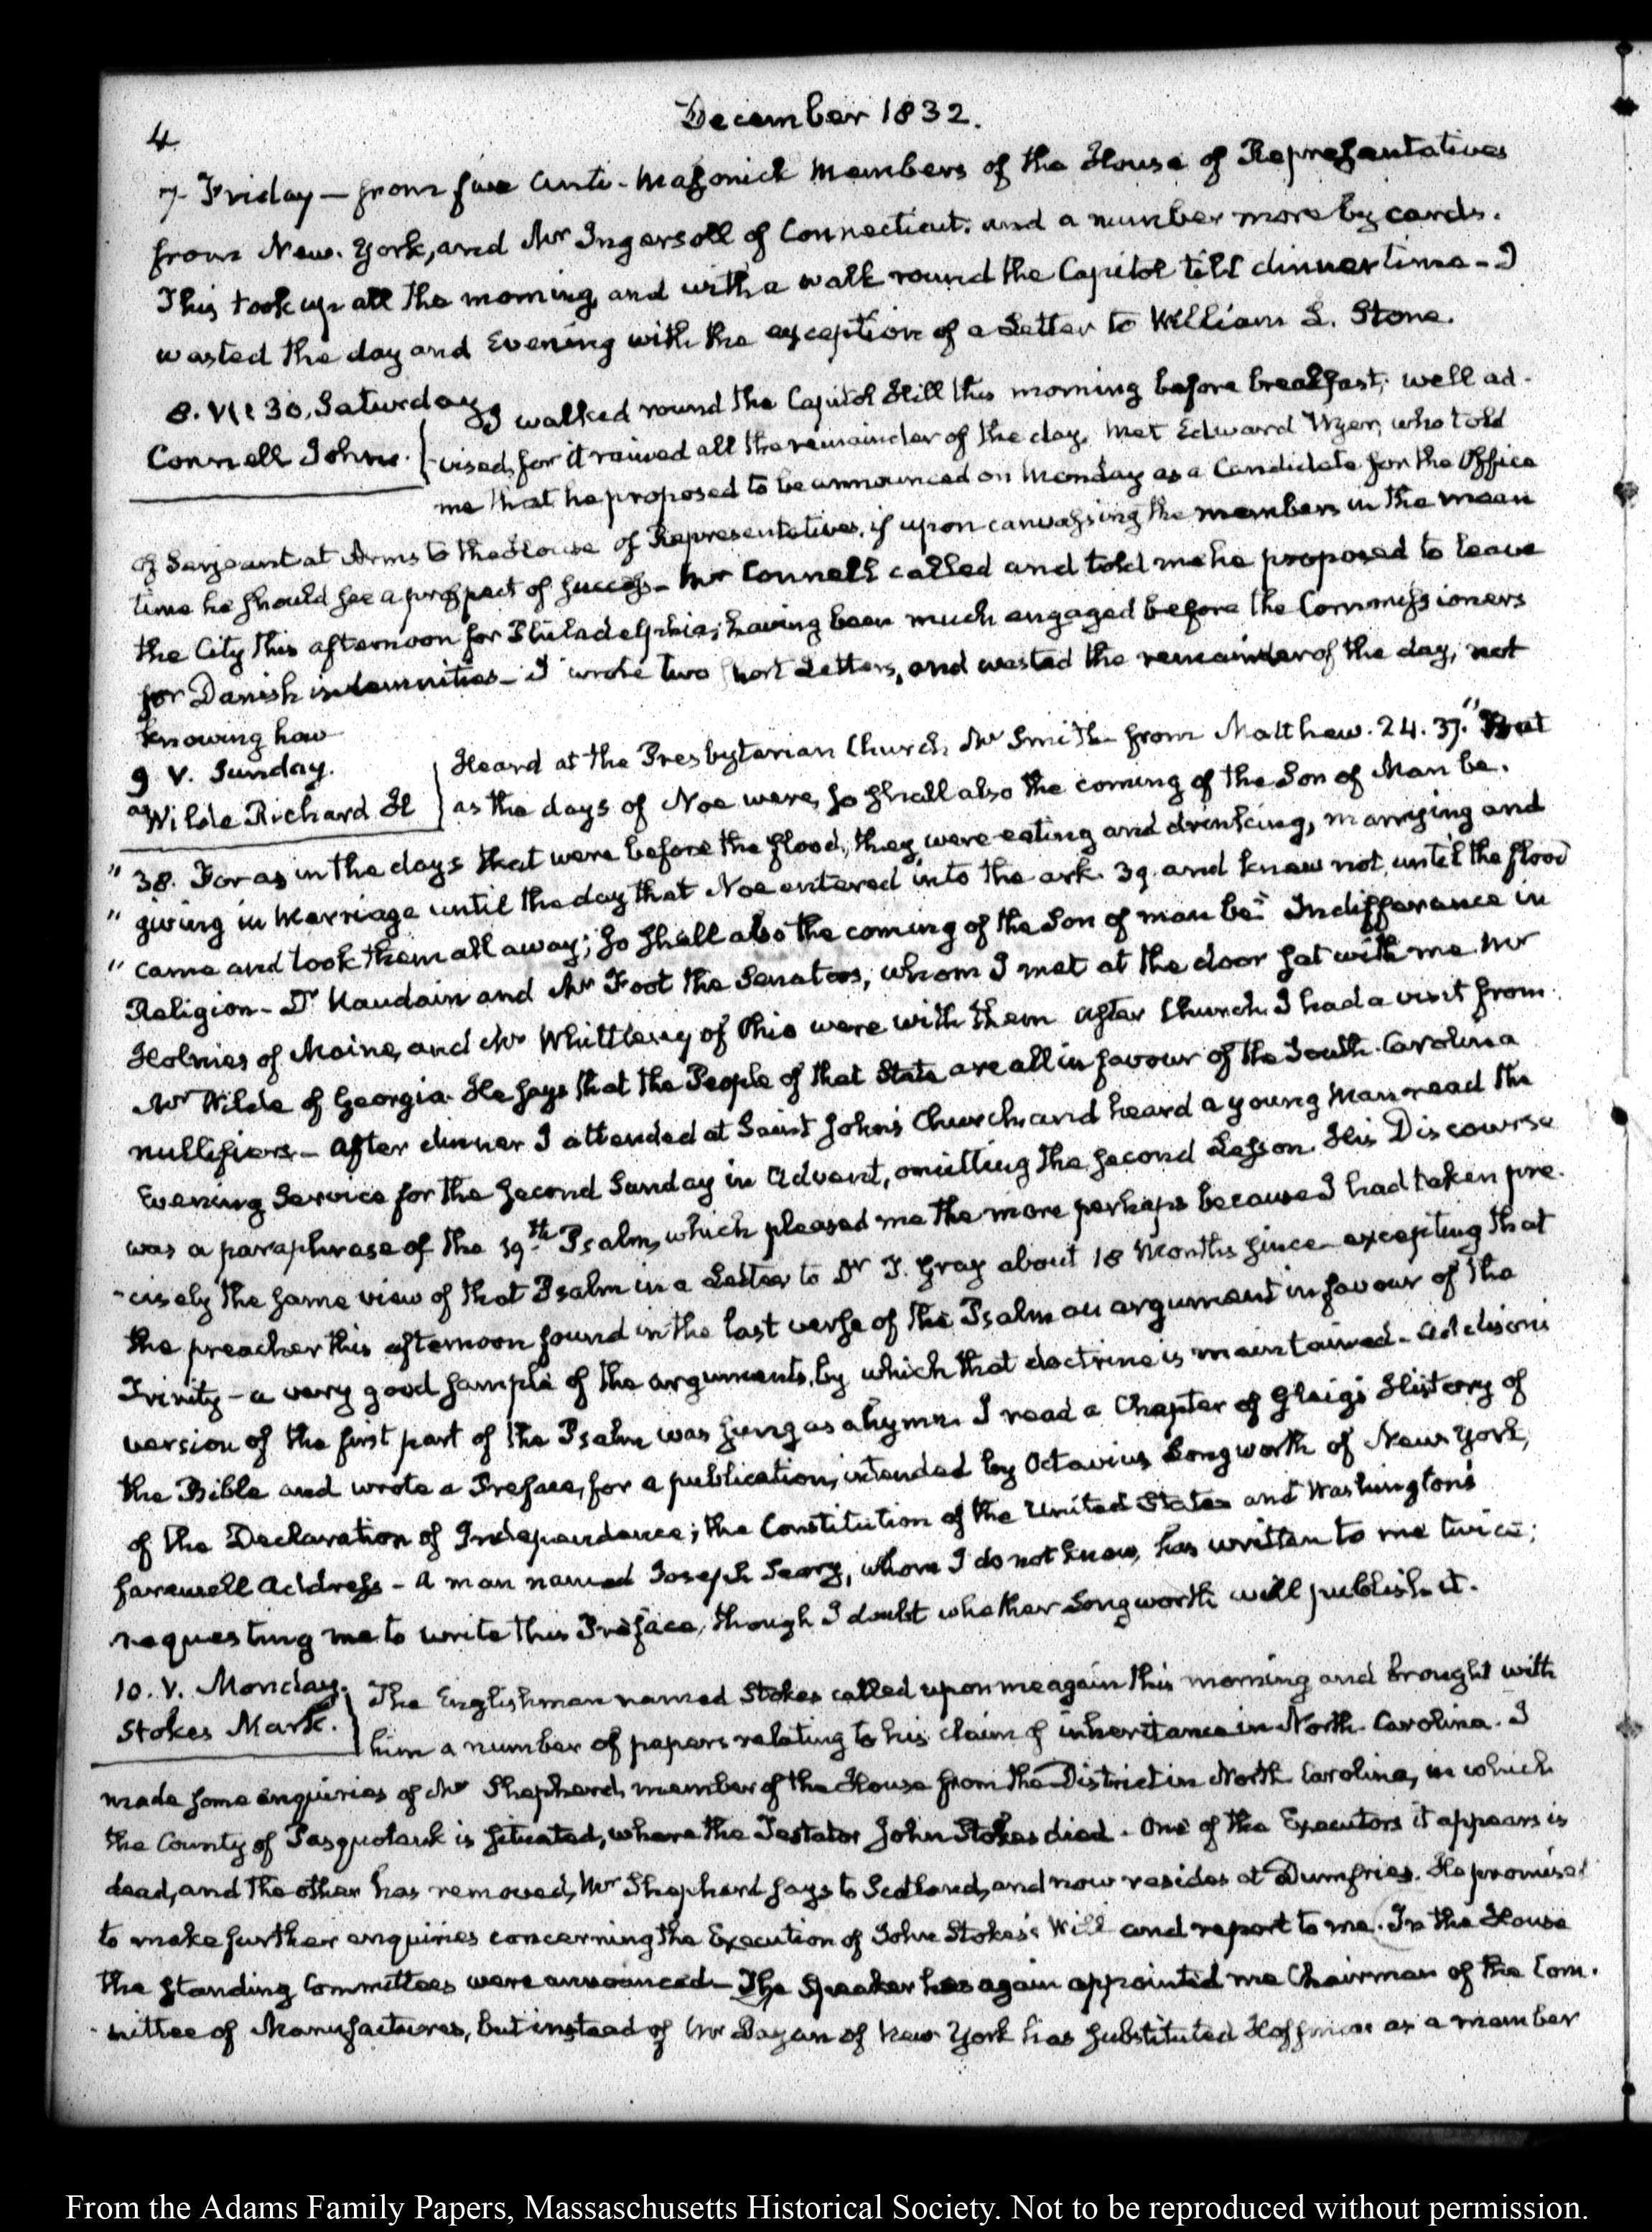 4
December 1832.
7- Friday — from five Anti-Masonick Members of the House of Representatives
from New-York, and Mr Ingersoll of Connecticut: and a number more by cards.
This took up all the morning, and with a walk round the Capitol till dinner time — I
wasted the day and Evening with the exception of a Letter to William L. Stone.
8. VII 30. Saturday
Connell John.
I walked round the Capitol Hill this morning before breakfast; well ad-
-vised, for it rained all the remainder of the day. Met Edward Wyer, who told
me that he proposed to be announced on Monday as a Candidate for the Office
of Serjeant at Arms to the House of Representatives, if upon canvassing the members in the mean
time he should see a prospect of success — Mr Connell called and told me he proposed to leave
the City this afternoon for Philadelphia; having been much engaged before the Commissioners
for Danish indemnities — I wrote two short Letters, and wasted the remainder of the day, not
knowing how
9. V. Sunday.
Wilde Richard H
Heard at the Presbyterian Church Mr Smith from Matthew. 24. 37. "But
as the days of Noe were, so shall also the coming of the Son of Man be.
" 38. For as in the days that were before the flood, they were eating and drinking, marrying and
" giving in Marriage until the day that Noe entered into the ark. 39. and knew not, until the flood
" came and took them all away; so shall also the coming of the Son of man be." Indifference in
Religion — Dr Naudain and Mr Foot the Senators, whom I met at the door sat with me. Mr
Holmes of Maine, and Mr Whittlesey of Ohio were with them. After Church I had a visit from
Mr Wilde of Georgia. He says that the People of that State are all in favour of the South-Carolina
nullifiers — After dinner I attended at Saint John's Church, and heard a young Man read the
Evening Service for the second Sunday in Advent, omitting the second Lesson. His Discourse
was a paraphrase of the 19th Psalm, which pleased me the more perhaps because I had taken pre-
-cisely the same view of that Psalm in a Letter to Dr T. Gray about 18 Months since — excepting that
the preacher this afternoon found in the last verse of the Psalm an argument in favour of the
Trinity — a very good sample of the arguments, by which that doctrine is maintained — Addison's
version of the first part of the Psalm was sung as a hymn. I read a Chapter of Gleig's History of
the Bible and wrote a Preface, for a publication, intended by Octavius Longworth of New York,
of the Declaration of Independence; the Constitution of the United States and Washington's
farewell Address — A man named Joseph, whom I do not know, has written to me twice;
requesting me to write this Preface, though I doubt whether Longworth will publish it.
10. V. Monday.
Stokes Mark.
The Englishman named Stokes called upon me again this morning and brought with
him a number of papers relating to his claim of inheritance in North-Carolina. I
made some enquiries of Mr Shepherd, member of the House from the District in North Carolina, in which
the County of Pasquotank is situated, where the Testator John Stokes died — One of the Executors it appears is
dead, and the other has removed, Mr Shepherd says to Scotland, and now resides at Dumfries. He promised
to make further enquiries concerning the Execution of John Stokes's Will and report to me. In the House
the standing Committees were announced — The Speaker has again appointed me Chairman of the Com-
-mittee of Manufactures, but instead of Mr Dayan of New York has substituted Hoffman as a member
From the Adams Family Papers, Massachusetts Historical Society. Not to be reproduced without permission.